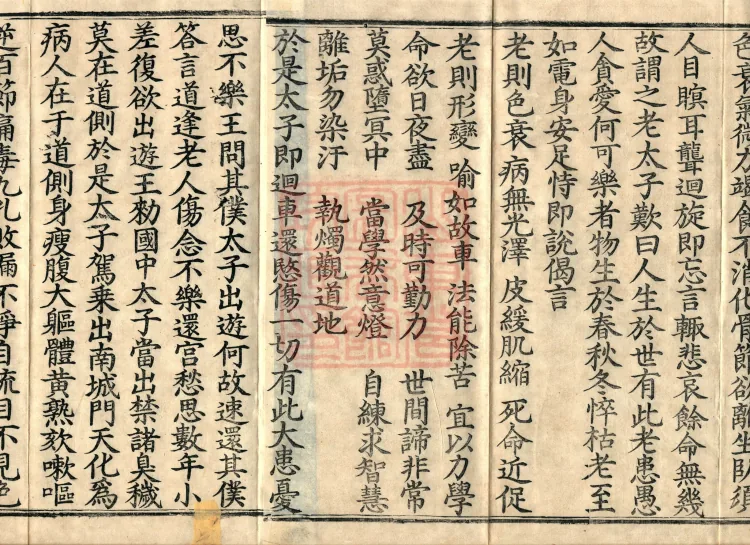 色衰氣微力竭食不消化骨節欲離坐臥須
人目瞑耳聾迴旋即忘言輙悲哀餘命無幾
故謂之老太子歎曰人生於世有此老患愚
人貪愛何可樂者物生於春秋冬悴枯老至
如電身安足恃即說偈言
老則色衰 病無光澤 皮緩肌縮 死命近促
老則形變 喻如故車 法能除苦 宜以力學
命欲日夜盡 及時可勤力 世間諦非常
莫惑墮冥中 當學然意燈 自練求智慧
離垢勿染汙 執燭觀道地
於是太子即迴車還愍傷一切有此大患憂
思不樂王問其僕太子出遊何故速還其僕
答言道逢老人傷念不樂還宮愁思數年小
差復欲出遊王勑國中太子當出禁諸臭穢
莫在道側於是太子駕乘出南城門天化為
病人在于道側身瘦腹大軀體黃熟欬嗽嘔
逆百節痛毒九孔敗漏不淨自流目不見色